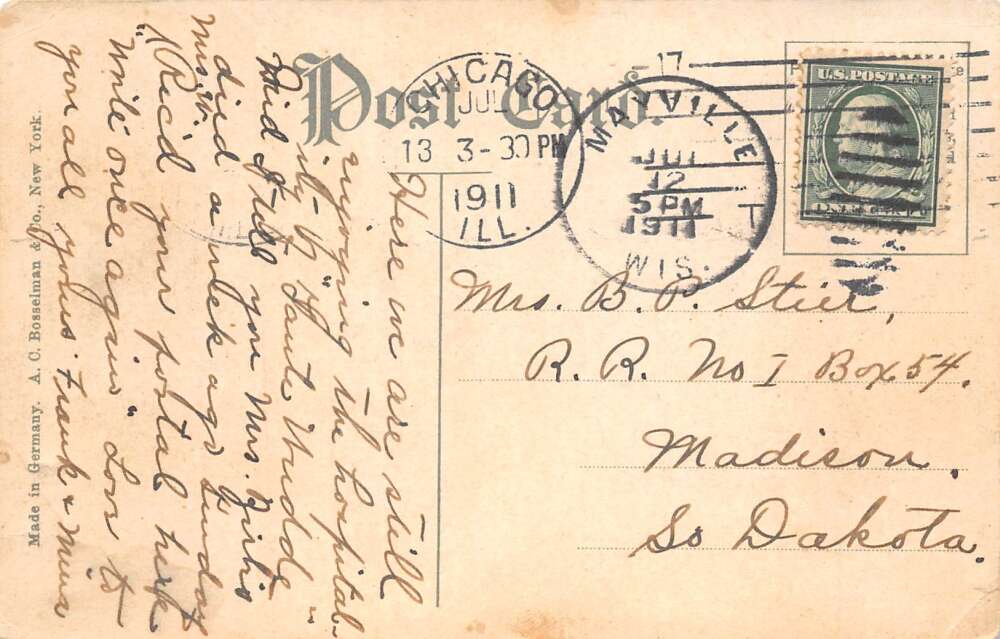 Post Card.
CHICAGO
JUL
13 3-30 PM
1911
ILL.
17
MAYVILLE
JUL
12
5 PM
1911
WIS.
U.S. POSTAGE
ONE CENT
Mrs. B. P. Stier,
R. R. No 1 Box 54.
Madison,
So Dakota.
Here we are still
enjoying the hospital-
ity of "Tante
Did I tell you Mrs.
died a week ago Sunday
Rec'd your postal here
Write once again" Love to
you all yours Frank & Mina
Made in Germany. A. C. Bosselman & Co., New York.